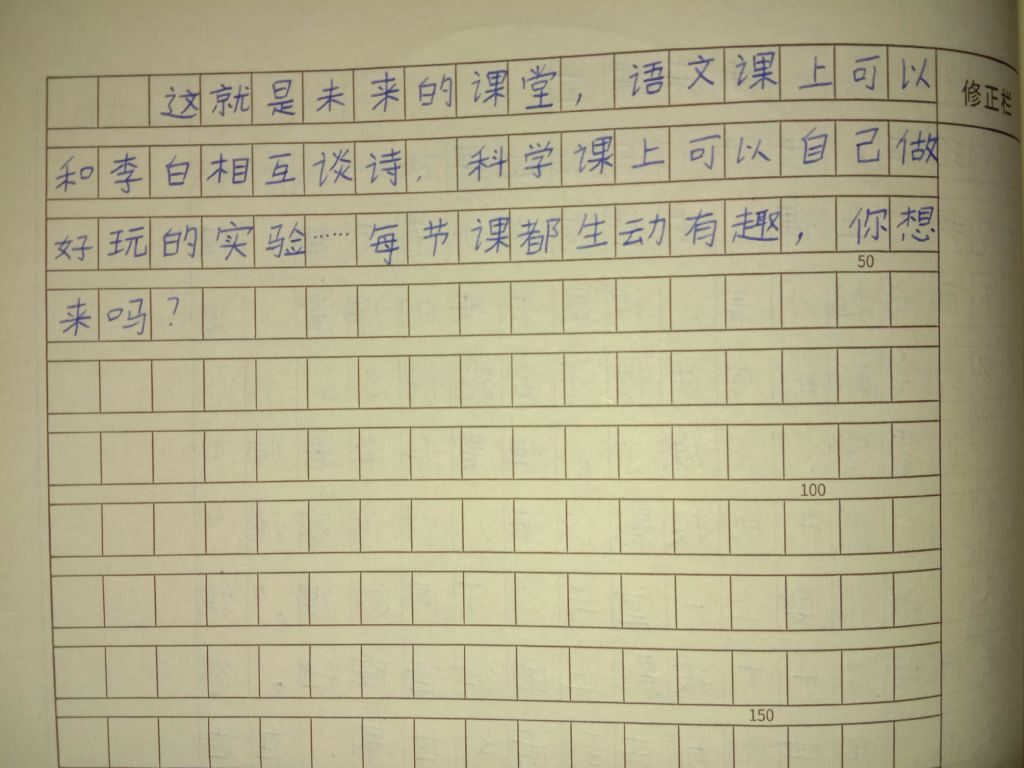 这就是未来的课堂，语文课上可以
修正栏
和李白相互谈诗.科学课上可以自己做
好玩的实验……每节课都生动有趣，你想
50
来吗？
100
150